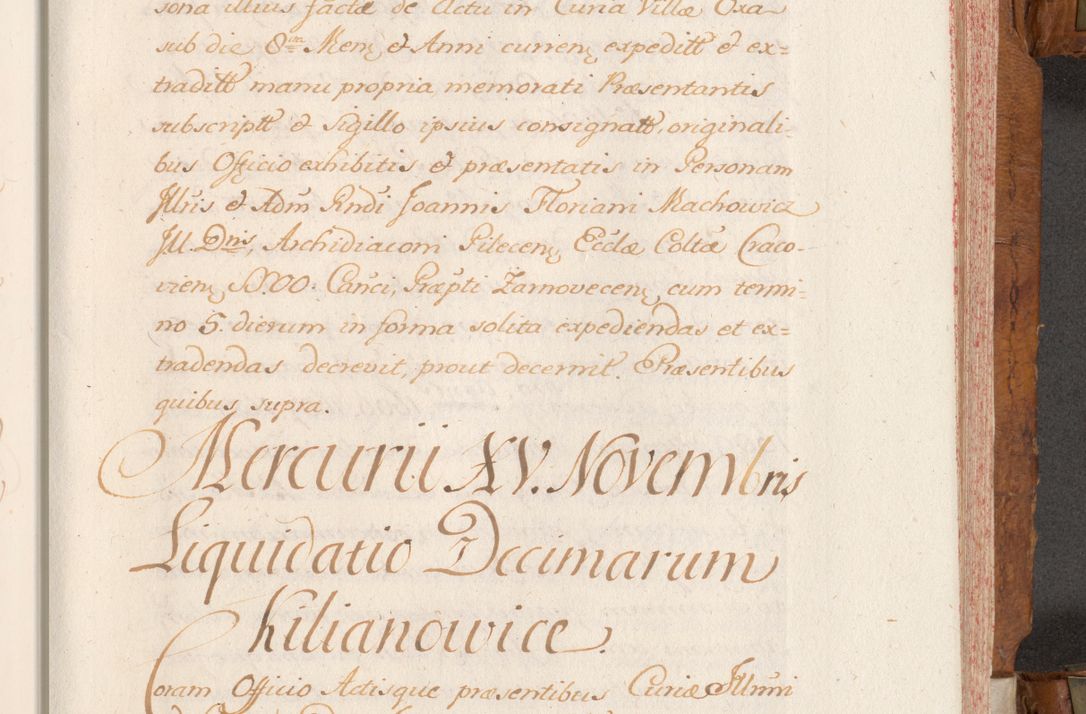 sona illius factæ de Actu in Curia Villæ Oxa
sub die 8va Men; & Anni curren; expeditt & ex=
traditt manu propria memorati Præsentantis
subscriptt & Sigillo ipsius consignatt, originali-
bus Officio exhibitis & præsentatis in Personam
Jllris & Adm Rndi Joannis Floriani Machowicz
JU. Dris, Archidiaconi Pilecen; Ecclæ Coltæ Craco-
vien; SS.OO. Canci, Præpti Zarnovecen; cum termi-
no 5. dierum in forma solita expediendas et ex=
tradendas decrevit, prout decernit. Præsentibus
quibus supra.
Mercurii XV. Novembris
Liquidatio Decimarum
Kilianowice.
Coram Officio Actisque præsentibus Curiæ Jllmi